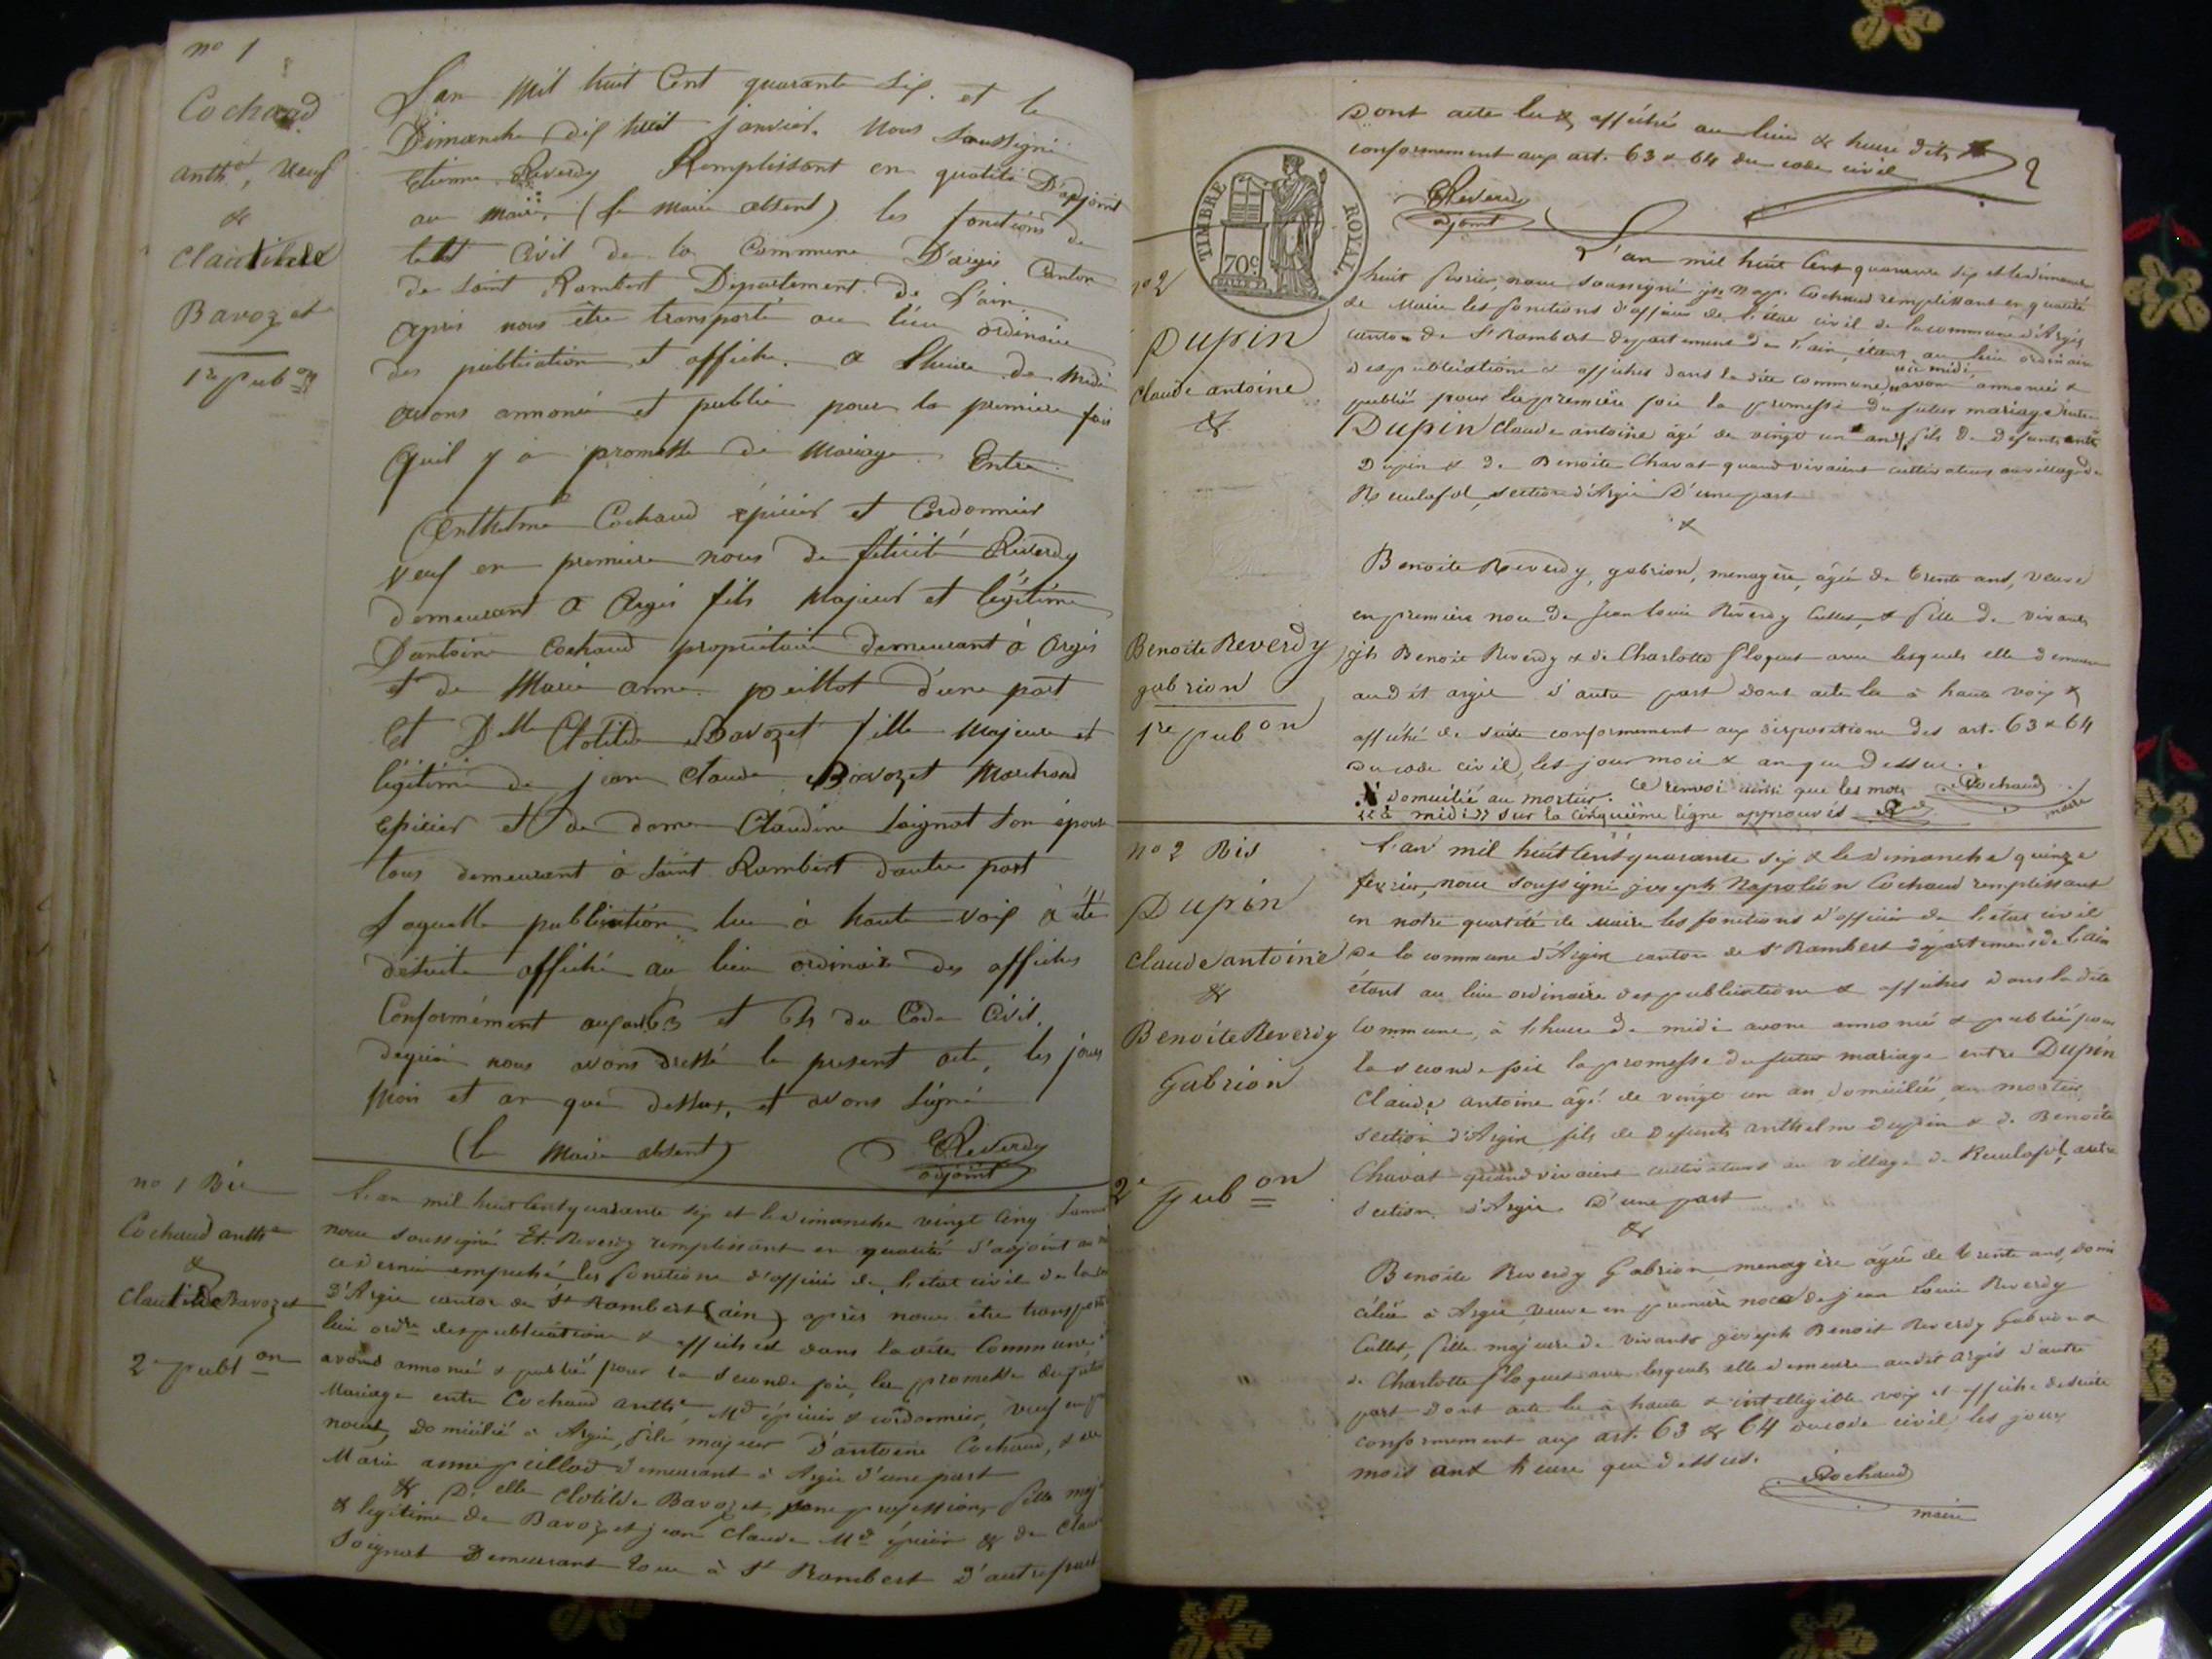 nº 1
Cochaud
anth.e, veuf
&
Claudilde
Bavozet
1re pub.on
L'an mil huit Cent quarante Six. et le
Dimanche dix huit janvier. Nous Soussigné
Etienne Reverdy Remplissant en qualité D'adjoint
au maire. (le maire absent) les fonctions de
letat Civil de la Commune D'argis Canton
de Saint Rambert Departement de L'ain
apres nous être transporté au lieu ordinaire
des publication et affiche. a lheure de midi
avons annoncé et publié pour la premiere fois
quil y a promesse de Mariage. Entre
Anthelme Cochaud épicier et Cordonnier
veuf en premiere noces de félicité Reverdy
demeurant a Argis fils Majeur et légitime
Dantoine Cochaud propriétaire demeurant à Argis
et de Marie anne peillot d'une part
Et Delle Clotilde Bavozet fille Majeure et
légitime de jean Claude Bavozet Marchand
Epicier et de dame Claudine Saignat son épouse
tous demeurant à Saint Rambert dautre part
Laquelle publication lue à haute voix a été
desuite affiché au lieu ordinaire des affiches
Conformément aux art 63 et 64 du Code Civil.
dequoi nous avons dressé le present acte, les jour
Mois et an que dessus, et avons Signé
(le Maire absent) EReverdy
adjoint
no 1 Bis
Cochaud anth.e
&
Claudilde Bavozet
2e publ.on
L'an mil huit Cent quarante six et le dimanche vingt Cinq Janv
nous soussigné Et. Reverdy remplissant en qualité d'adjoint au
ce dernier empeché, les fonctions d'officier de l'etat civil de la
D'Argis canton de St Rambert (ain) après nous être transporté
lieu ordre des publications & affiches dans la dite Commune,
avons annoncé & publié pour la seconde fois, la promesse du futur
Mariage entre Cochaud anth.e, Md épicier & cordonnier, veuf en
noces, Domicilié à Argis, fils majeur D'antoine Cochaud, & de
Marie anne peillod demeurant à Argis d'une part
& D.elle Clotilde Bavozet, sans profession, fille maj
& légitime de Bavozet jean Claude Md épicier & de Clau
Soignat Demeurant tous à St Rambert D'autre part
Dont acte lu & affiché au lieu & heure dits
conformement aux art. 63 & 64 du code civil
EReverdy
adjoint
TIMBRE ROYAL.
70c
nº 2
Dupin
Claude antoine
&
Benoite Reverdy
gabrion
1re pub on
L'an mil huit Cent quarante six et le dimanche
huit fevrier, nous soussigné jh Nap. Cochaud remplissant en qualité
de Maire les fonctions d'officier de l'état civil de la commune d'Argis
canton de St Rambert departement de l'ain, étant au lieu ordinaire
des publications & affiches dans la dite commune, "à midi" avons annoncé &
publié pour la première fois la promesse du futur mariage entre
Dupin Claude antoine âgé de vingt un ans fils de defunts anth
Dupin & de Benoite Chavat quand vivaient cultivateurs au village de
Reculafol, section d'Argis D'une part
&
Benoite Reverdy, gabrion, menagère, âgée de trente ans, veuve
en première noce de Jean louis Reverdy Cullet, & fille de vivants
jh Benoit Reverdy & de Charlotte floquet avec lesquels elle demeure
audit argis d'autre part dont acte lu à haute voix &
affiché de suite conformement aux dispositions des art. 63 & 64
du code civil, les jour mois & an que dessus.
X domicilié au mortier. Ce renvoi ainsi que les mots
"à midi" sur la cinquième ligne approuvés
Cochaud
maire
no 2 Bis
Dupin
Claude antoine
&
Benoite Reverdy
Gabrion
2e pub on
L'an mil huit Cent quarante six & le dimanche quinze
fevrier, nous soussigné joseph Napoléon Cochaud remplissant
en notre qualité de Maire les fonctions d'officier de l'état civil
de la commune d'Argis canton de St Rambert département de l'ain
étant au lieu ordinaire des publications & affiches dans la dite
Commune, à l'heure de midi avons annoncé & publié pour
la seconde fois la promesse du futur mariage entre Dupin
Claude Antoine âgé de vingt un an, domicilié au mortier
section d'Argis fils de defunts anthelme dupin & de Benoite
Chavat quand vivaient cultivateurs au village de Reculafol, autre
section d'Argis D'une part
&
Benoite Reverdy Gabrion, menagère âgée de trente ans, domi
ciliée à Argis, veuve en première noce de jean louis Reverdy
Cullet, fille majeure de vivants joseph Benoit Reverdy Gabrion &
de Charlotte floquet avec lesquels elle demeure audit argis d'autre
part dont acte lu à haute & intelligible voix et affiché desuite
conformement aux art. 63 & 64 du code civil, les jour
mois an & heure que dessus.
Cochaud
maire